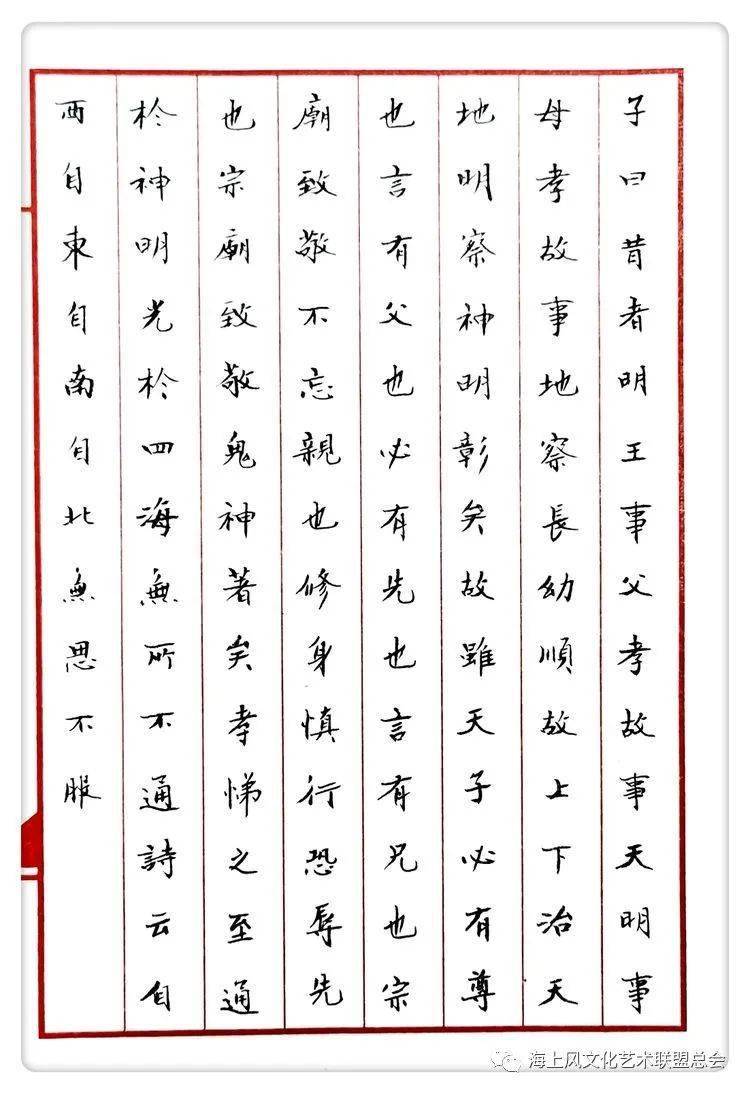 子曰昔者明王事父孝故事天明事
母孝故事地察長幼順故上下治天
地明察神明彰矣故雖天子必有尊
也言有父也必有先也言有兄也宗
廟致敬不忘親也修身慎行恐辱先
也宗廟致敬鬼神著矣孝悌之至通
於神明光於四海無所不通詩云自
西自東自南自北無思不服
海上风文化艺术联盟总会